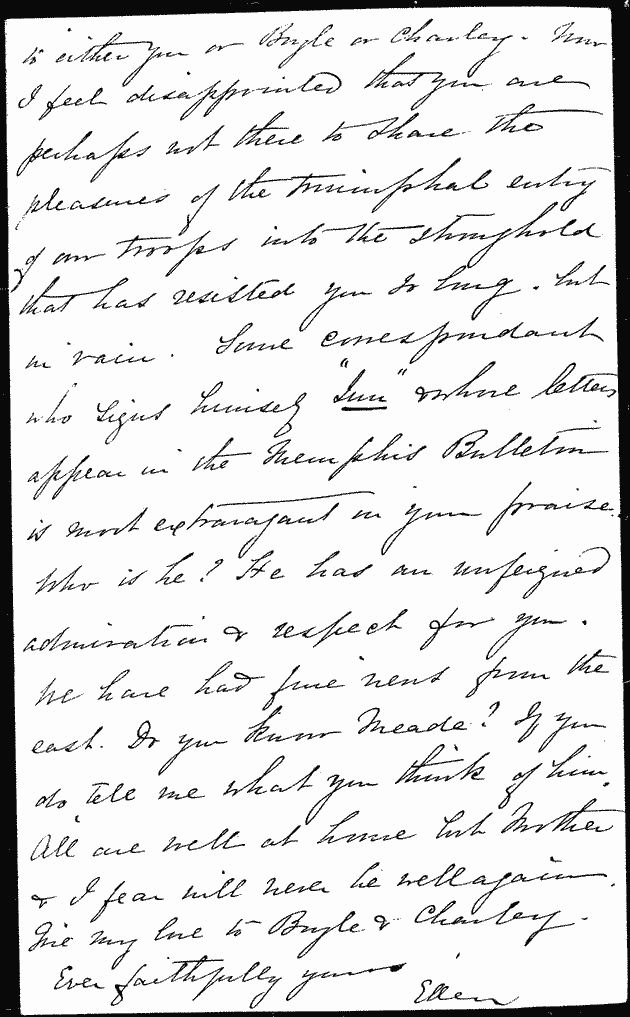 to either you or Boyle or Charley. Now
I feel disappointed that you are
perhaps not there to share the
pleasures of the triumphal entry
of our troops into the stronghold
that has resisted you so long. but
in vain. Some correspondant
who signs himself "Inu" & whose letters
appear in the Memphis Bulletin
is most extravagant in your praise.
Who is he? He has an unfeigned
admiration & respect for you.
We have had fine news from the
east. Do you know Meade? If you
do tell me what you think of him.
All are well at home but Mother
& I fear will never be well again.
Give my love to Boyle & Charley.
Ever faithfully yours
Ellen